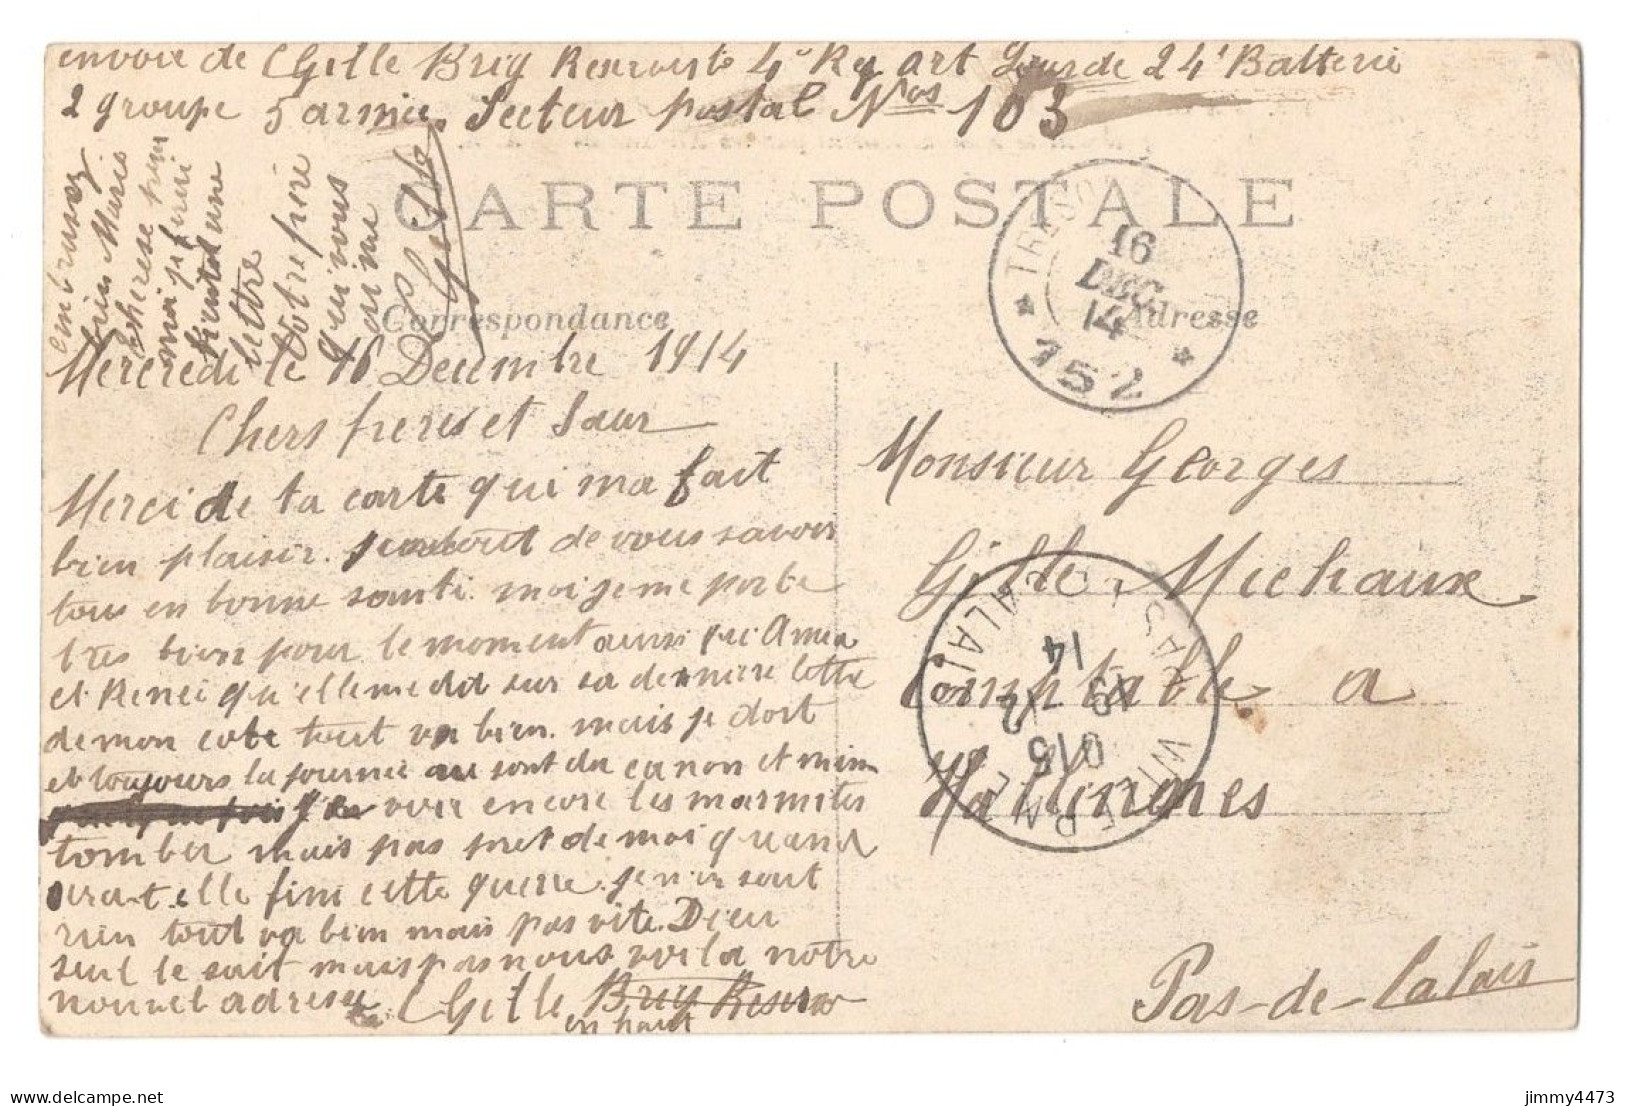 envoie de C Gille Brig Reserviste 4e Reg art Lourde 24e Batterie
2 groupe 5 armée. Secteur postal Nos 103
CARTE POSTALE
Correspondance
Adresse
TRESOR
16
DEC
14
* 152 *
embrassez
bien Marie
Therese pour
moi je
une
lettre
Votre frère
qui vous
aime
C Gille
Mercredi le 16 Decembre 1914
Chers freres et Sœur
Merci de ta carte qui ma fait
bien plaisir. surtout de vous savoir
tous en bonne santé. moi je me porte
tres bien pour le moment aussi
et Renei qu'elle me dit sur sa dernière lettre
de mon cote tout va bien. mais je dort
et toujours la journeé au son du canon et
voir encore les marmites
tomber mais pas pret de moi quand
serat. elle fini cette guerre. je n'en sait
rien tout va bien mais pas vite. Dieu
seul le sait mais pas nous voila notre
nouvel adresse C Gille Brig Reserv
en haut
Monsieur Georges
Gille Michaux
Comptable a
Hallingnes
Pas-de-Calais
WIERRE
PAS DE CALAIS
015
19 12
14
delcampe.net
jimmy4473